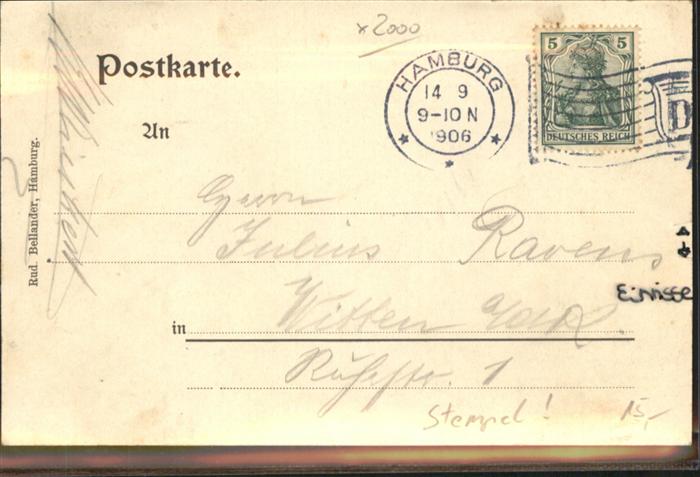 x2000
Postkarte.
HAMBURG
14 9
9-10N
1906
5 5
DEUTSCHES REICH
D
An
Rud. Bellander, Hamburg.
Herrn
Julius Ravens
Einrisse
in Witten a/d R.
Ruhrstr. 1
Stempel!
15,-